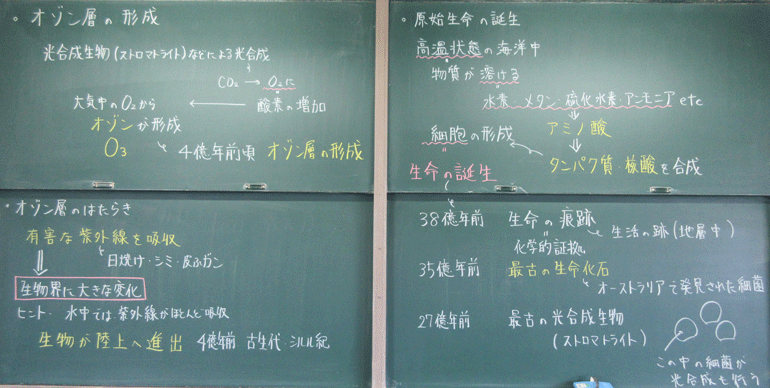 。オゾン層の形成
光合成生物(ストロマトライト)などによる光合成
CO₂ → O₂に
大気中のO₂から ← 酸素の増加
オゾンが形成
O₃ 4億年前頃 オゾン層の形成
・オゾン層のはたらき
有害な紫外線を吸収
日焼け・シミ・皮ふガン
生物界に大きな変化
ヒント・水中では紫外線がほとんど吸収
生物が陸上へ進出 4億年前 古生代・シルル紀
。原始生命の誕生
高温状態の海洋中
物質が溶ける
水素・メタン・硫化水素・アンモニア etc
アミノ酸
細胞の形成
タンパク質・核酸を合成
生命の誕生
38億年前 生命の痕跡 生活の跡(地層中)
化学的証拠
35億年前 最古の生命化石
オーストラリアで発見された細菌
27億年前 最古の光合成生物
(ストロマトライト)
この中の細菌が
光合成を行う